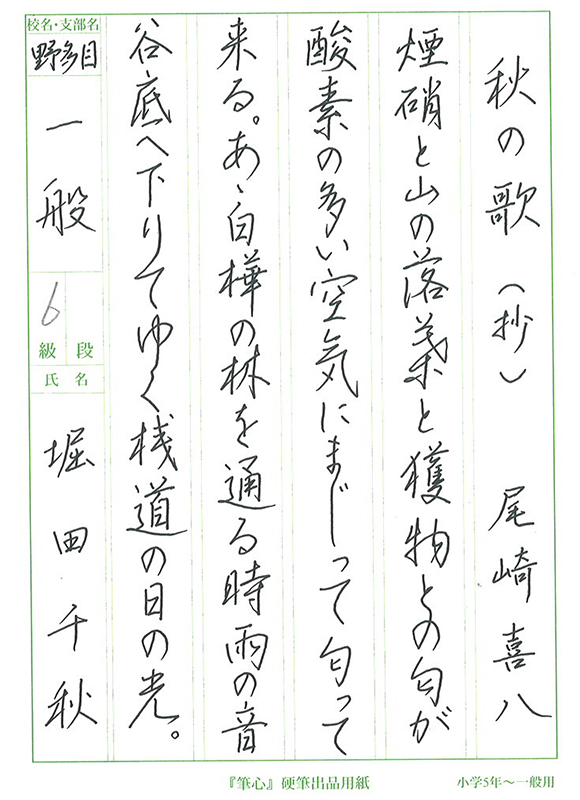 秋の歌（抄）　尾崎喜八
煙硝と山の落葉と獲物との匂が
酸素の多い空気にまじって匂って
来る。あゝ白樺の林を通る時雨の音
谷底へ下りてゆく桟道の日の光。
校名・支部名
野多目
一般
6
級 段
氏名
堀田千秋
『筆心』硬筆出品用紙
小学5年～一般用